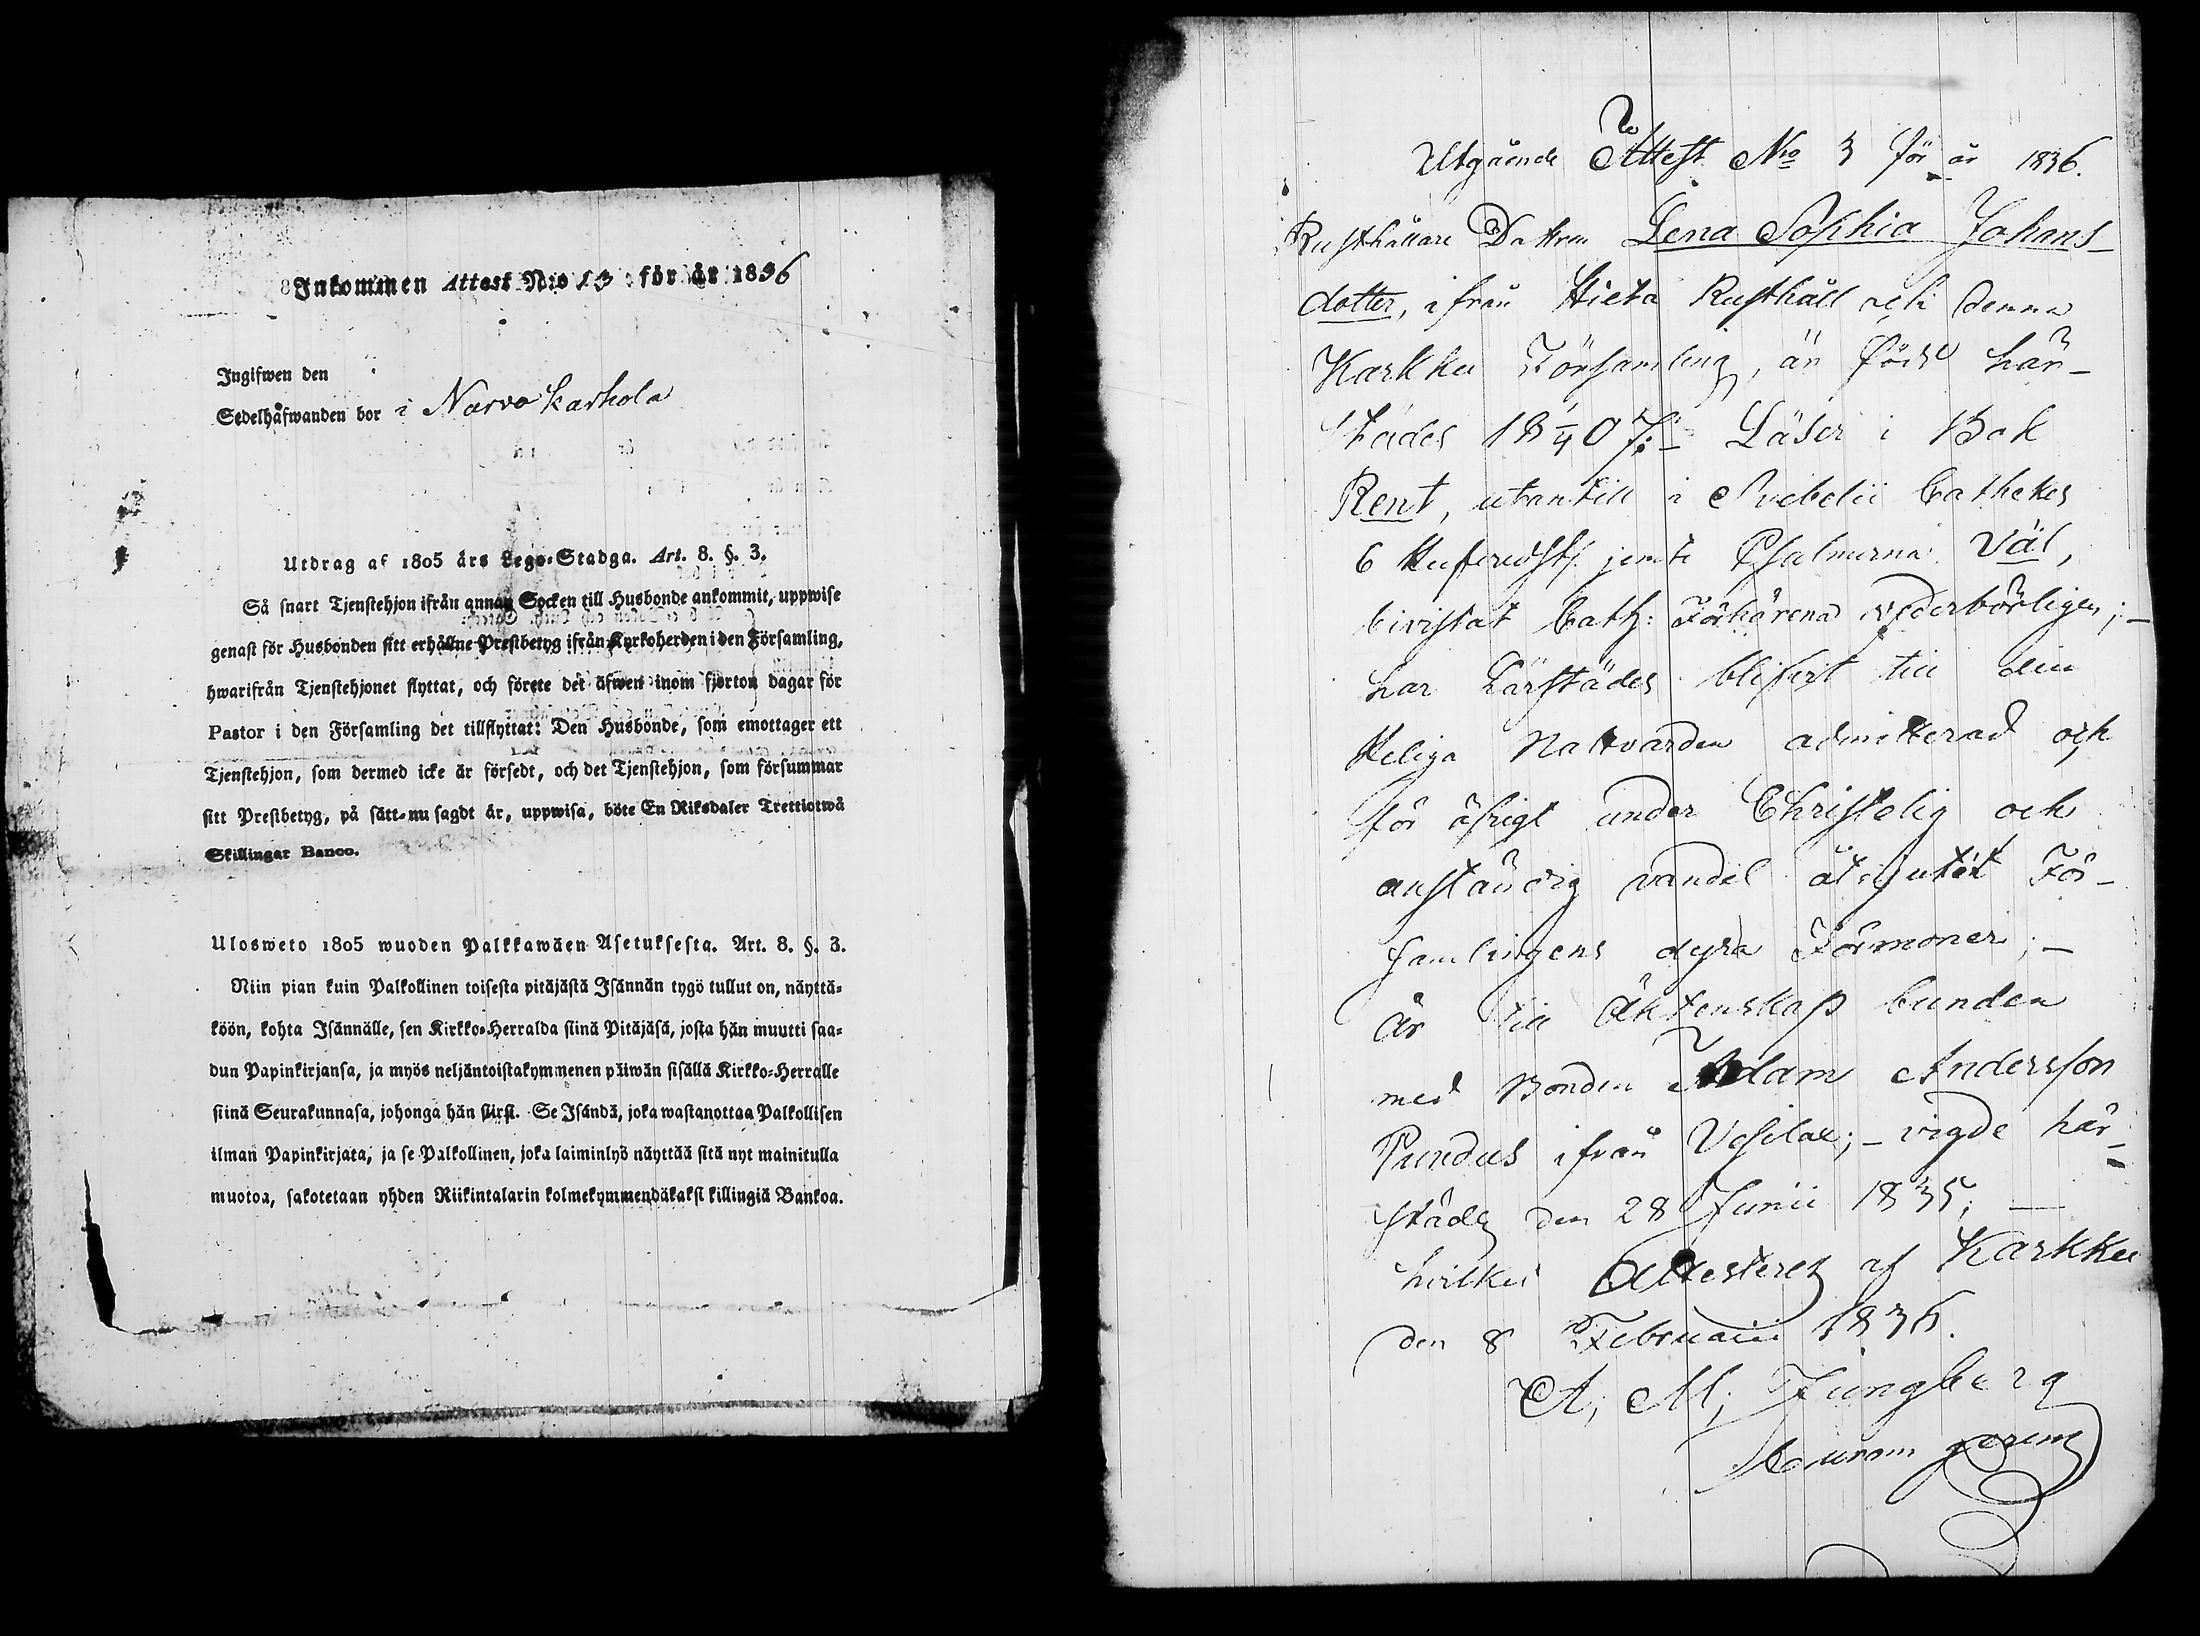 Inkommen Attest N:o 13 för år 1836
Ingifwen den
Sedelhafwanden bor i Narva Karhola
Utdrag af 1805 års Lego-Stadga. Art. 8. §. 3.
Så snart Tjenstehjon ifrån annan Socken till Husbonde ankommit, uppwise
genast för Husbonden sitt erhållne Prestbetyg ifrån Kyrkoherden i den Församling,
hwarifrån Tjenstehjonet flyttat, och förete det äfwen inom fjorton dagar för
Pastor i den Församling det tillflyttat: Den Husbonde, som emottager ett
Tjenstehjon, som dermed icke är försedt, och det Tjenstehjon, som försummar
sitt Prestbetyg, på sätt nu sagdt är, uppwisa, böte En Riksdaler Trettiotwå
Skillingar Banco.
Ulosweto 1805 wuoden Palkkawäen Asetuksesta. Art. 8. §. 3.
Niin pian kuin Palkollinen toisesta pitäjästä Isännän tygö tullut on, näyttä-
köön, kohta Isännälle, sen Kirkko-Herralda siinä Pitäjäsä, josta hän muutti saa-
dun Papinkirjansa, ja myös neljäntoistakymmenen päiwän sisällä Kirkko-Herralle
siinä Seurakunnasa, johonga hän siirsi. Se Isändä, joka wastanottaa Palkollisen
ilman Papinkirjata, ja se Palkollinen, joka laiminlyö näyttää sitä nyt mainitulla
muotoa, sakotetaan yhden Riikintalarin kolmekymmendäkaksi killingiä Bankoa.
Utgående Attest No 3 för år 1836.
Rusthållare Dottren Lena Sophia Johans-
dotter, ifrån Hieta Rusthåll och denna
Karkku Församling, är född här-
städes 18 1/4 07;- Läser i Bok
Rent, utantill i Svebelii Cathekes
6 Hufvudst. jemte Psalmerna Väl,
bivistat Cath: Förhören vederbörligen;-
har härstädes blifvit till den
Heliga Nattvarden admitterad och
för öfrigt under Christelig och
anständig vandel åtnjutit För-
samlingens dyra Förmoner;-
är till äktenskap bunden
med Bonden Adam Andersson
Pundus ifrån Vesilax;- vigde här-
städes den 28 Junii 1835;
hvilket Attesteres af Karkku
den 8 Februarii 1836.
A; M; Ljungberg